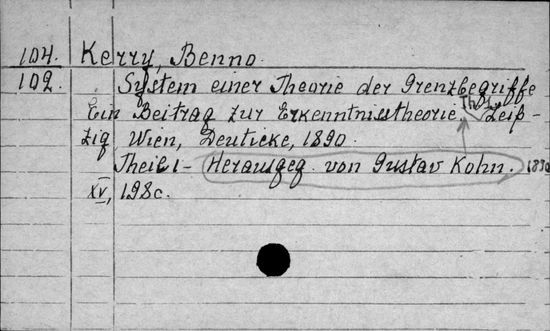 104. Kerry, Benno.
102. System einer Theorie der Grenzbegriffe
Ein Beitrag zur Erkenntnisstheorie. Th. I. Leip-
zig, Wien, Deuticke, 1890.
Theil I - Herausgeg. von Gustav Kohn. 1890
XV, 198 c.